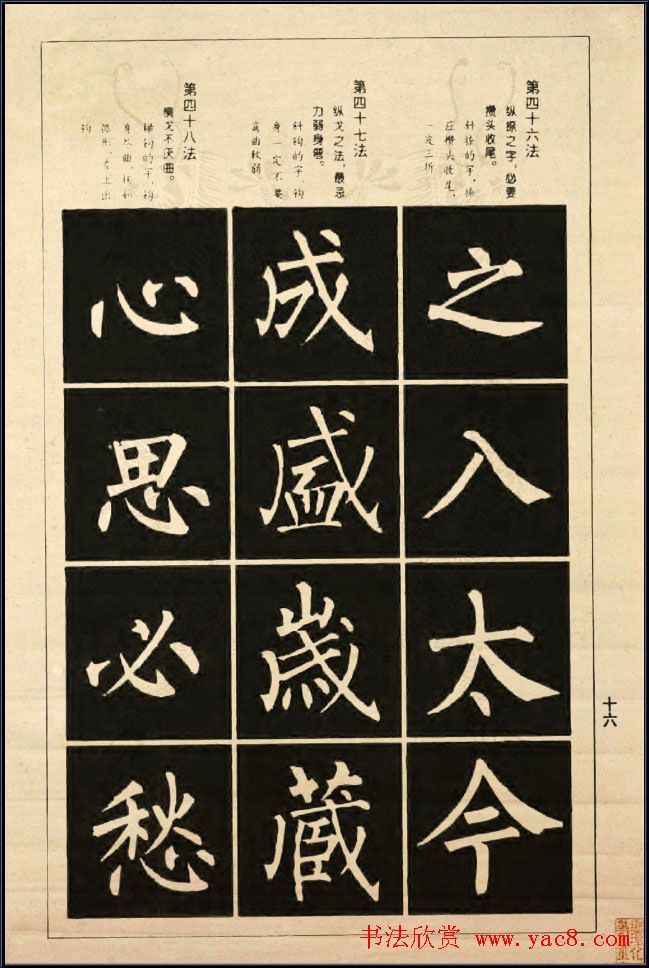 第四十六法
纵捺之字，必要
攒头收尾。
斜捺的字，捺
应攒头收尾，
一波三折
之
入
太
今
第四十七法
纵戈之法，最忌
力弱身弯。
斜钩的字，钩
身一定不要
弯曲软弱
成
盛
歲
藏
第四十八法
横戈不厌曲。
横钩的字，钩
心
思
必
愁
十六
书法欣赏 www.yac8.com